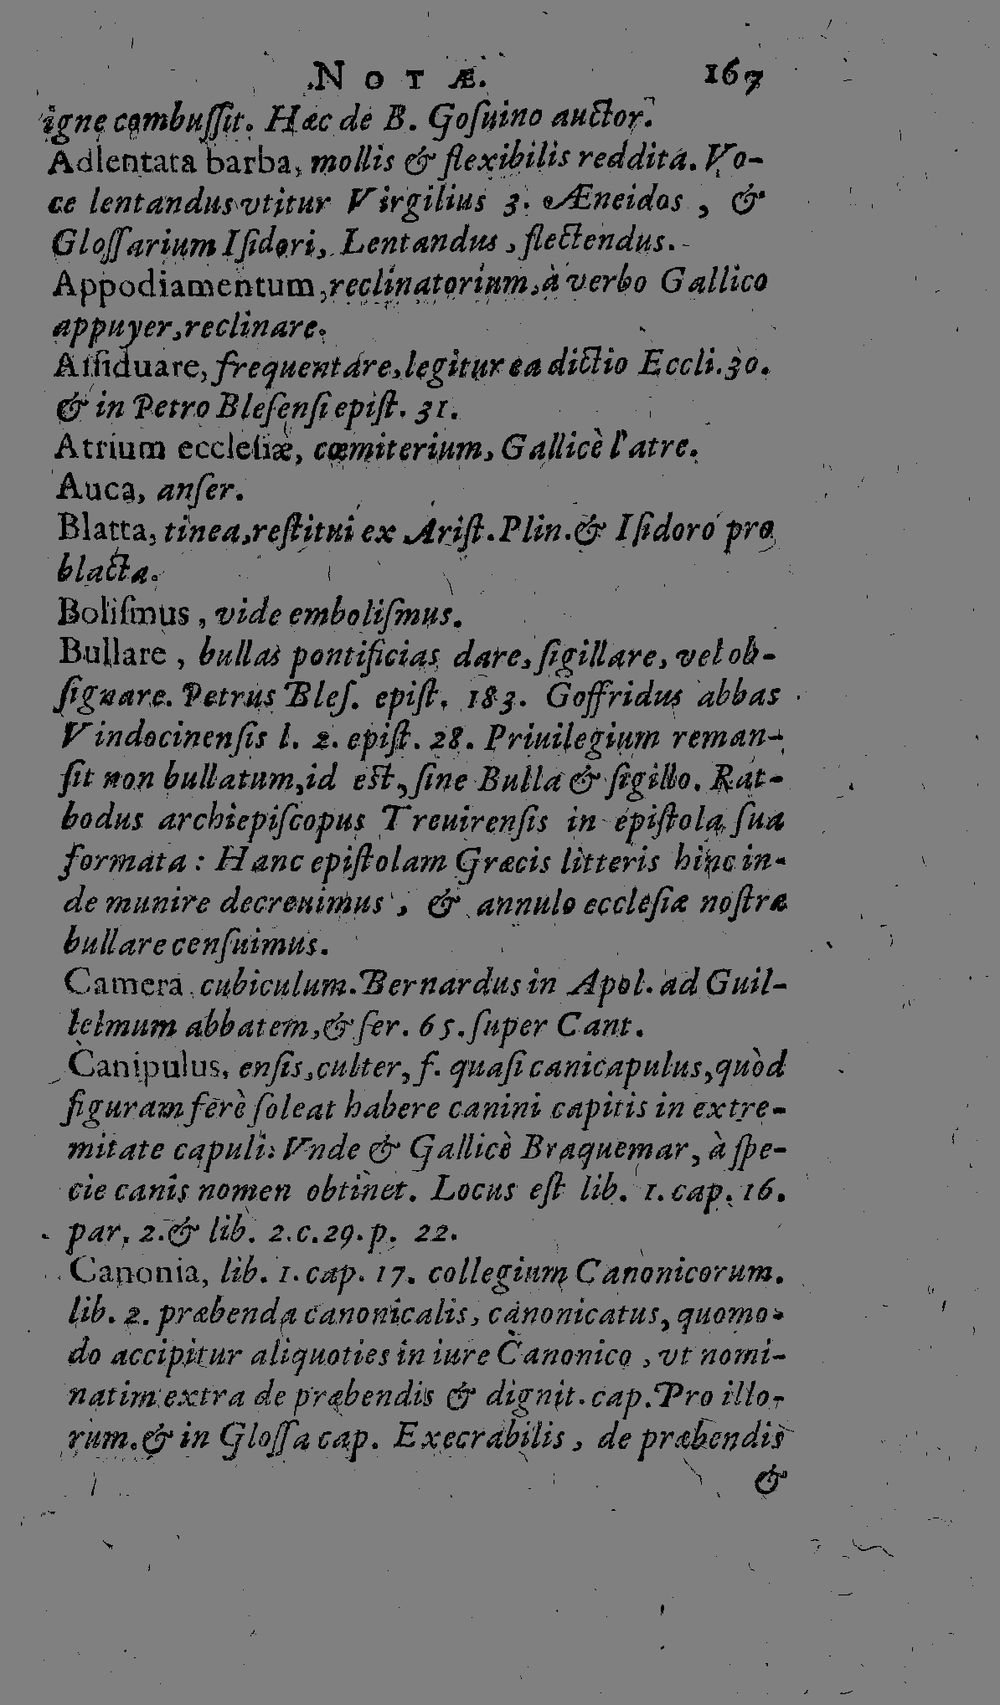 NOTÆ. 167
igne combuſſit. Hæc de B. Goſuino auctor.
Adlentata barba, mollis & flexibilis reddita. Vo-
ce lentandus vtitur Virgilius 3. Æneidos, &
Gloſſarium Iſidori, Lentandus, flectendus.
Appodiamentum, reclinatorium, à verbo Gallico
appuyer, reclinare.
Aſſiduare, frequentare, legitur ea dictio Eccli. 30.
& in Petro Bleſenſi epiſt. 31.
Atrium eccleſiæ, cœmiterium, Gallicè l'atre.
Auca, anſer.
Blatta, tinea, reſtitui ex Ariſt. Plin. & Iſidoro pro
blacta.
Boliſmus, vide emboliſmus.
Bullare, bullas pontificias dare, ſigillare, vel ob-
ſignare. Petrus Bleſ. epiſt. 183. Goffridus abbas
Vindocinenſis l. 2. epiſt. 28. Priuilegium reman-
ſit non bullatum, id est, ſine Bulla & ſigillo. Rat-
bodus archiepiſcopus Treuirenſis in epiſtola ſua
formata: Hanc epiſtolam Græcis litteris hinc in-
de munire decreuimus, & annulo eccleſiæ noſtræ
bullare cenſuimus.
Camera cubiculum. Bernardus in Apol. ad Guil-
lelmum abbatem, & ſer. 65. ſuper Cant.
Canipulus, enſis, culter, f. quaſi canicapulus, quòd
figuram ferè ſoleat habere canini capitis in extre-
mitate capuli: Vnde & Gallicè Braquemar, à ſpe-
cie canis nomen obtinet. Locus eſt lib. 1. cap. 16.
par. 2. & lib. 2. c. 29. p. 22.
Canonia, lib. 1. cap. 17. collegium Canonicorum.
lib. 2. præbenda canonicalis, canonicatus, quomo-
do accipitur aliquoties in iure Canonico, vt nomi-
natim extra de præbendis & dignit. cap. Pro illo-
rum. & in Gloſſa cap. Execrabilis, de præbendis
&